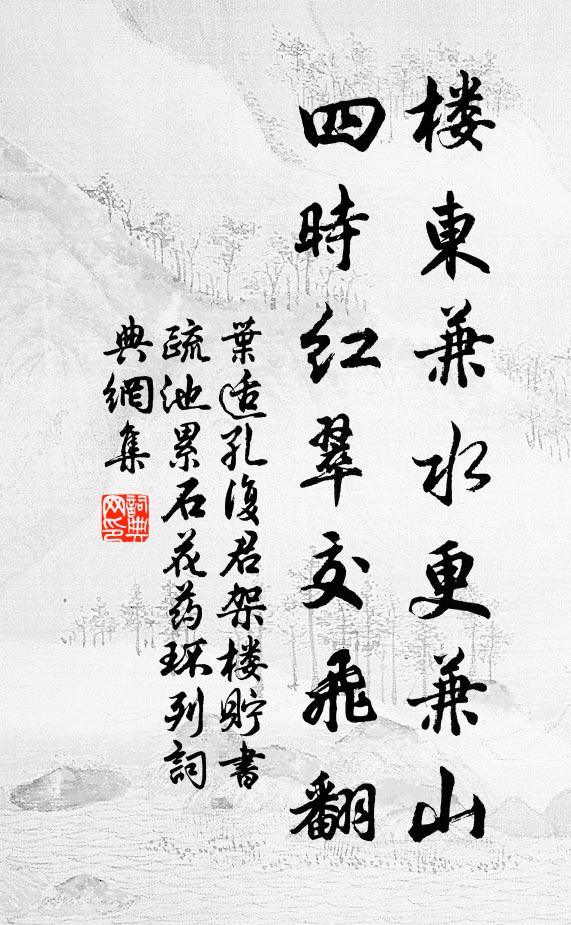 楼東兼水更兼山
四時紅翠交飛翻
葉适孔復君架楼貯書
疏池累石花药环列詞
典網集
詞典
网印